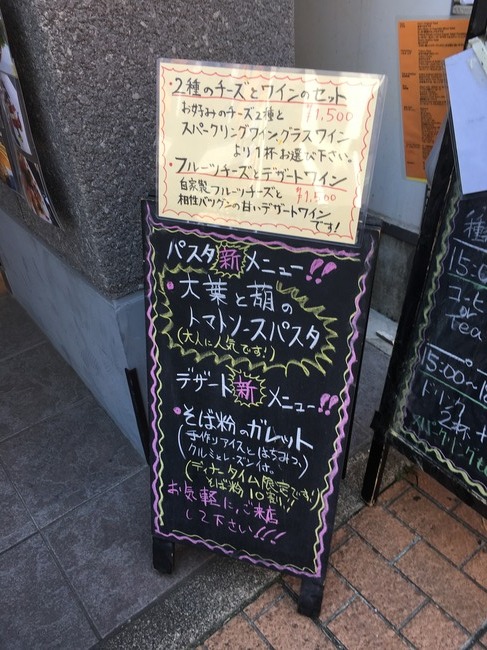 ・2種のチーズとワインのセット
お好みのチーズ2種と ¥1,500
スパークリングワイン、グラスワイン
より1杯お選び下さい。
・フルーツチーズとデザートワイン
自家製フルーツチーズと ¥1,500
相性バツグンの甘いデザートワイン
です!
パスタ新メニュー!!
・大葉と茄の
トマトソースパスタ
(大人に人気です!)
デザート新メニュー!!
・そば粉のガレット
(手作りアイスとはちみつ、
クルミとレーズン付。)
(ディナータイム限定です!)
そば粉10割!!
お気軽に、ご来店
して下さい!!!
15:0
コーヒ
or
tea
15:00~18
ドリン
2杯+
スパークリング